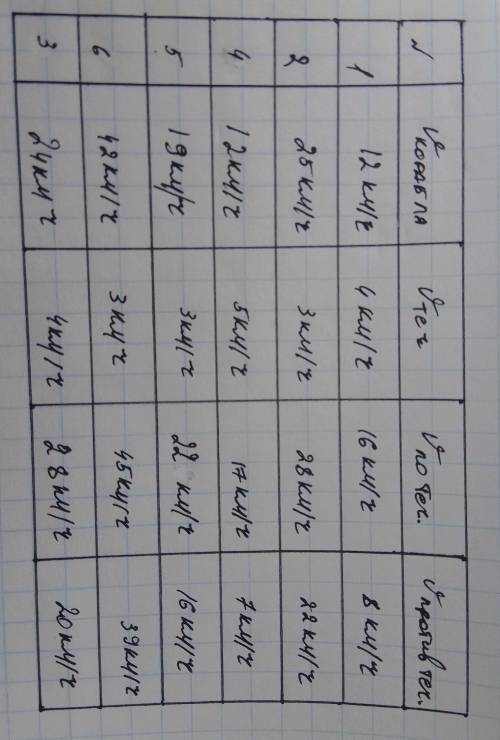 N V корабля V теч V по теч. V против теч.
1 12 км/ч 4 км/ч 16 км/ч 8 км/ч
2 25 км/ч 3 км/ч 28 км/ч 22 км/ч
4 12 км/ч 5 км/ч 17 км/ч 7 км/ч
5 19 км/ч 3 км/ч 22 км/ч 16 км/ч
6 42 км/ч 3 км/ч 45 км/ч 39 км/ч
3 24 км/ч 4 км/ч 28 км/ч 20 км/ч